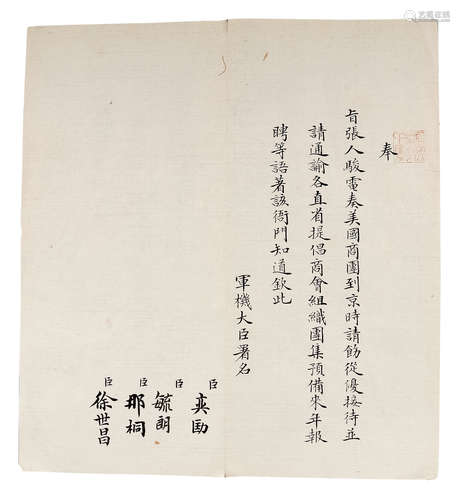 奉
旨張人駿電奏美國商團到京時請飭從優接待並
請通諭各直省提倡商會組織團集預備來年報
聘等語著該衙門知道欽此
軍機大臣署名
臣 奕劻
臣 毓朗
臣 那桐
臣 徐世昌
艺狐在线